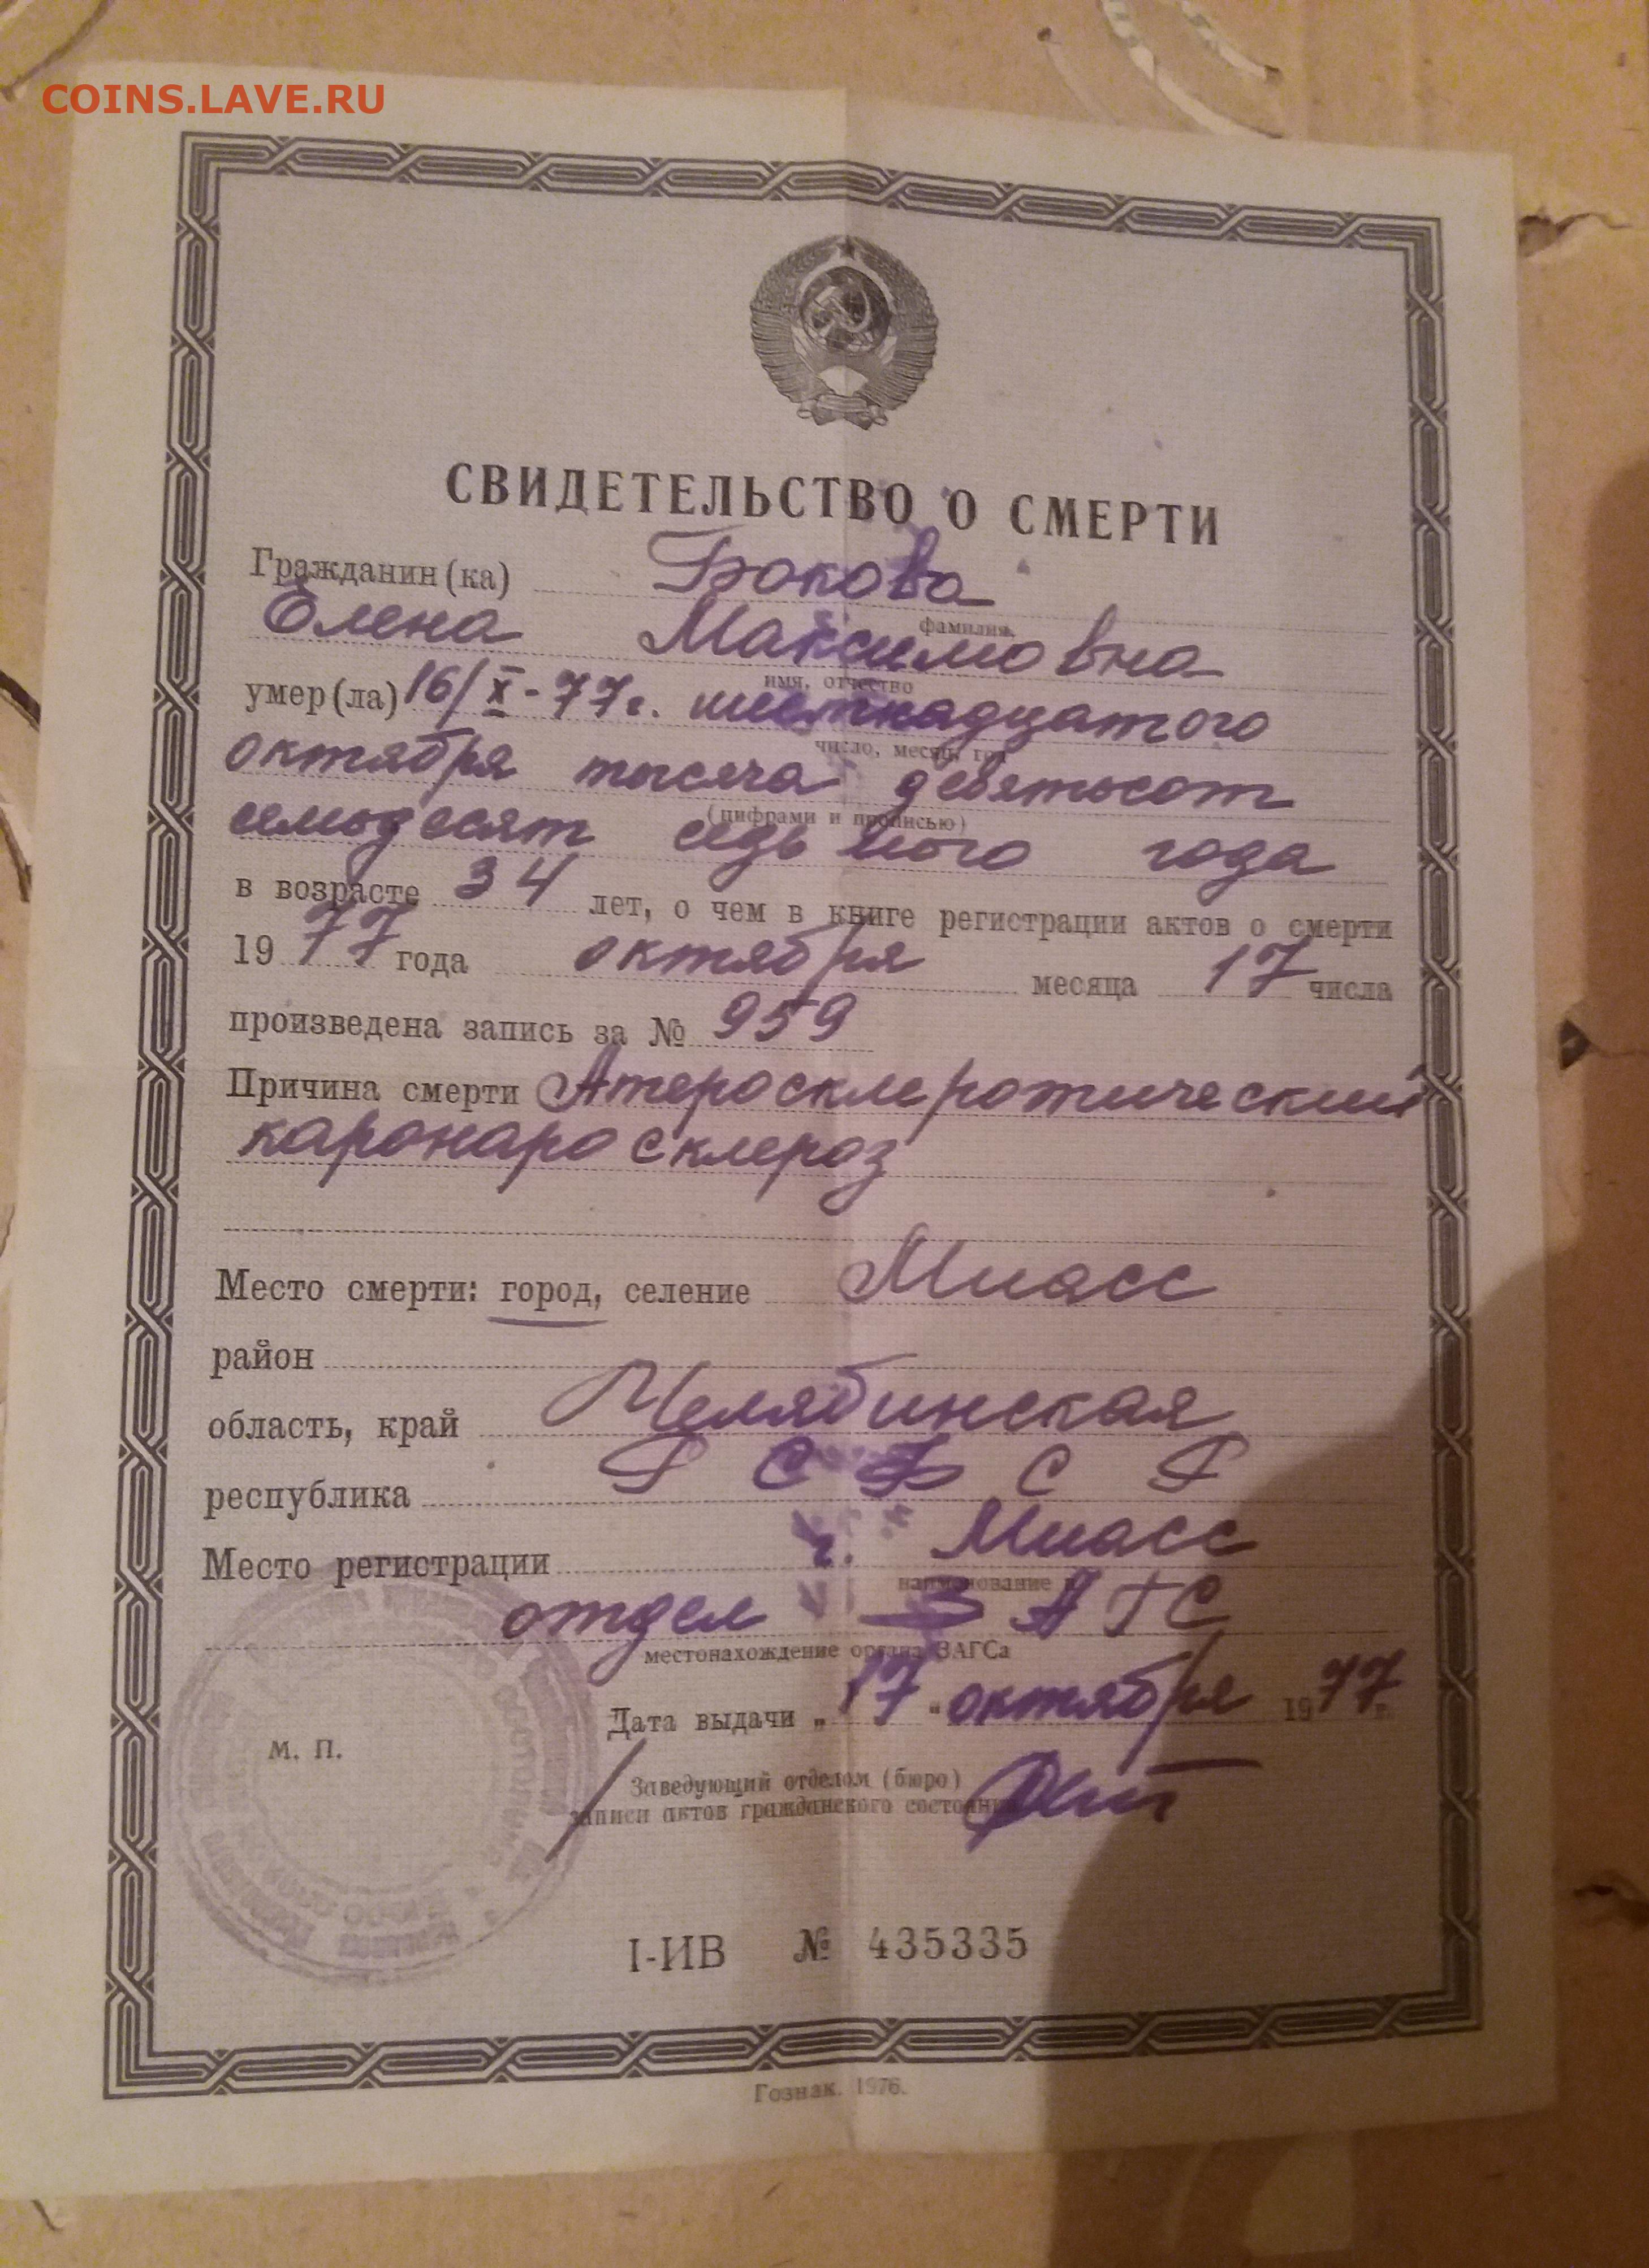 COINS.LAVE.RU
СВИДЕТЕЛЬСТВО О СМЕРТИ
Гражданин(ка) Бокова
фамилия,
Елена Максимовна
имя, отчество
умер(ла) 16/X-77г. шестнадцатого
число, месяц, год
октября тысяча девятьсот
(цифрами и прописью)
семьдесят седьмого года
в возрасте 34 лет, о чем в книге регистрации актов о смерти
1977 года октября месяца 17 числа
произведена запись за № 959
Причина смерти Атеросклеротический
каронаросклероз
Место смерти: город, селение Миасс
район
область, край Челябинская
республика РСФСР
Место регистрации г. Миасс
наименование и
отдел ЗАГС
местонахождение органа ЗАГСа
Дата выдачи „17" октября 1977 г.
М. П.
Заведующий отделом (бюро)
записи актов гражданского состояния
I-ИВ № 435335
Гознак. 1976.